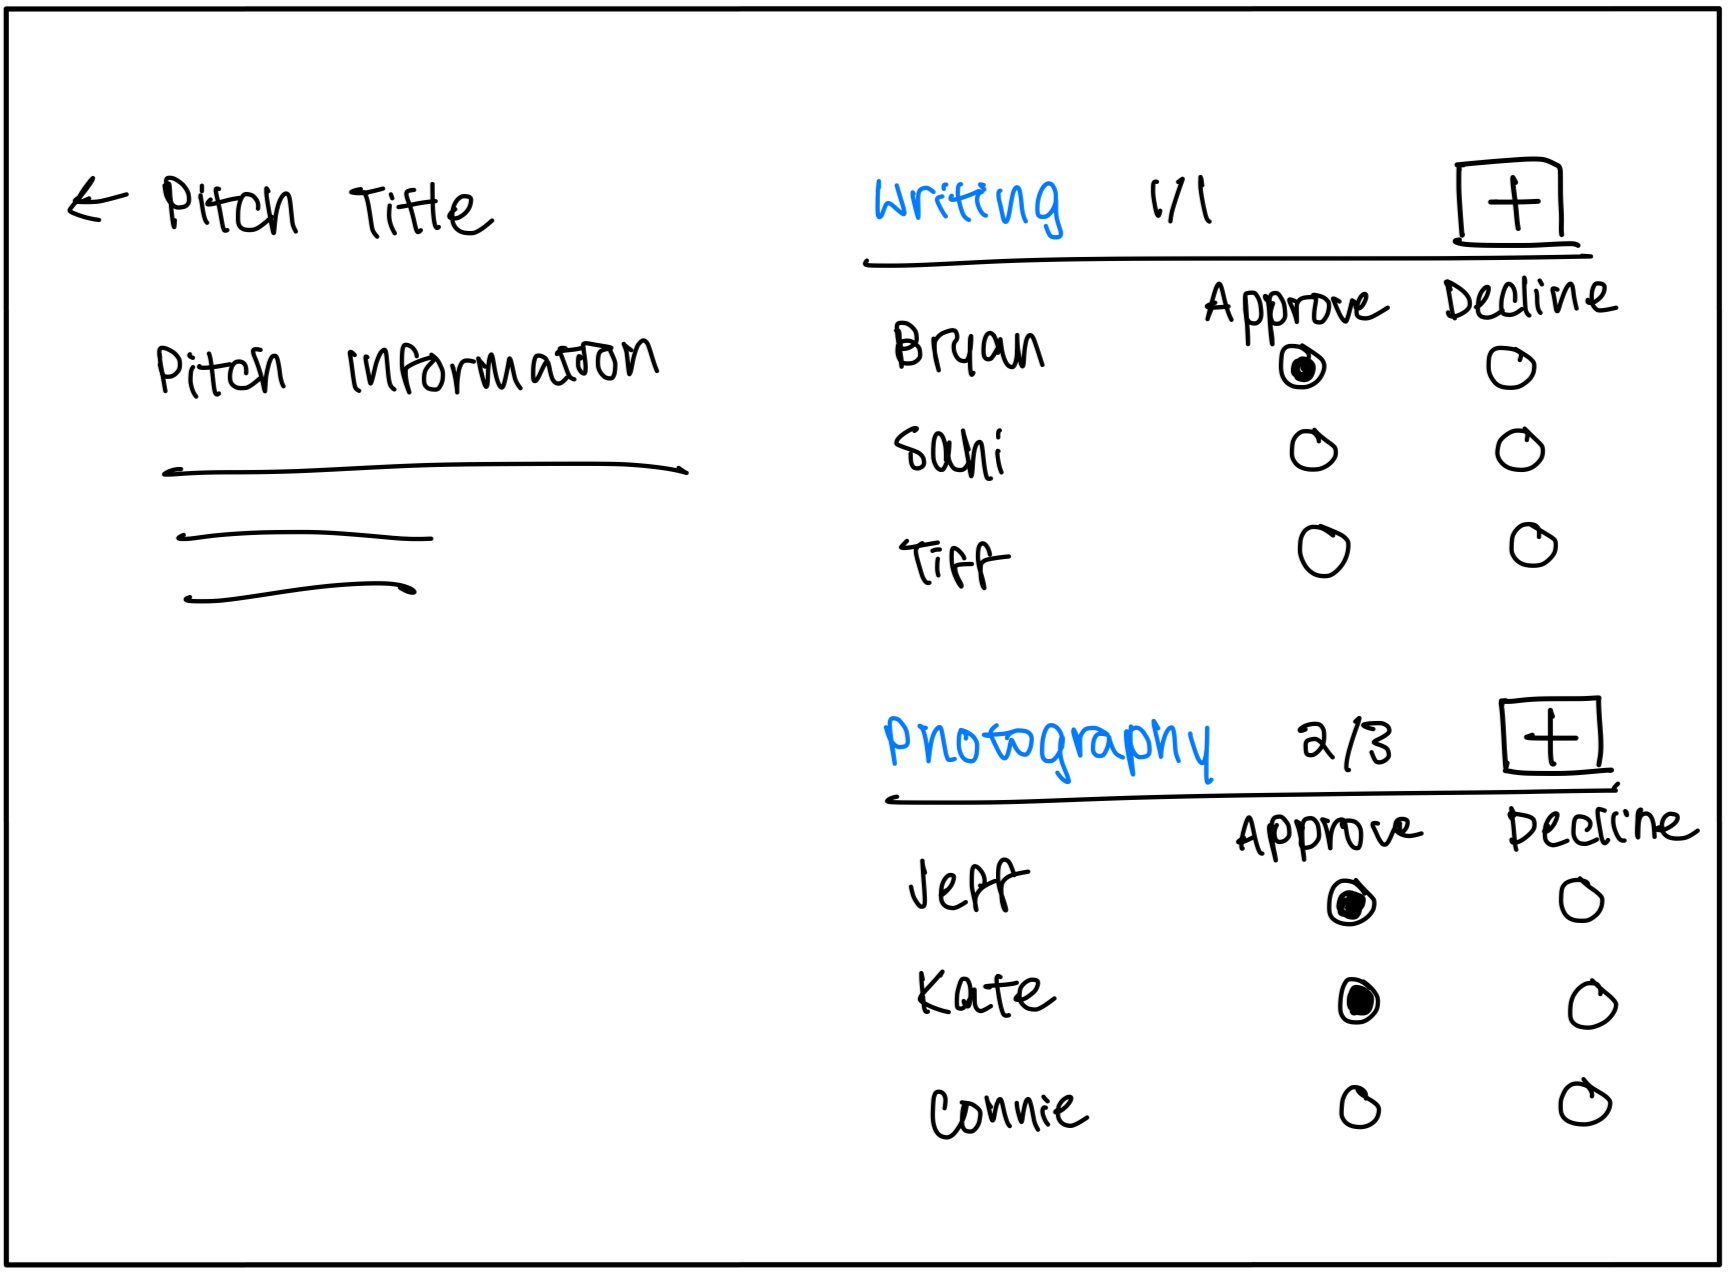 ← Pitch Title
Pitch Information
Writing 1/1 +
Approve Decline
Bryan
Sahi
Tiff
Photography 2/3 +
Approve Decline
Jeff
Kate
Connie